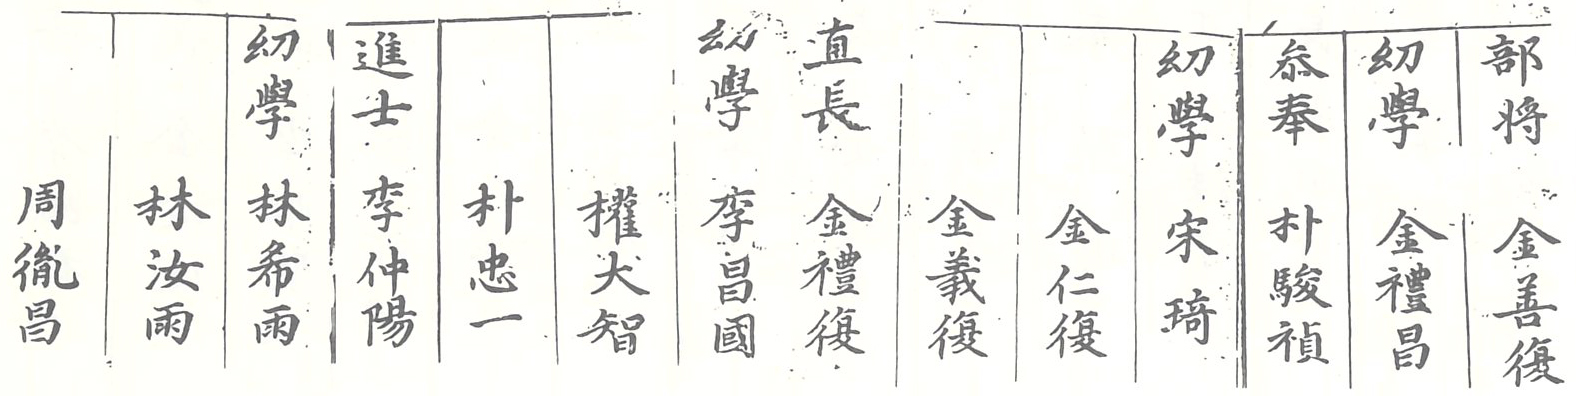 部將 金善復
幼學 金禮昌
叅奉 朴駿禎
幼學 宋琦
金仁復
金義復
直長 金禮復
幼學 李昌國
權大智
朴忠一
進士 李仲陽
幼學 林希雨
林汝雨
周胤昌